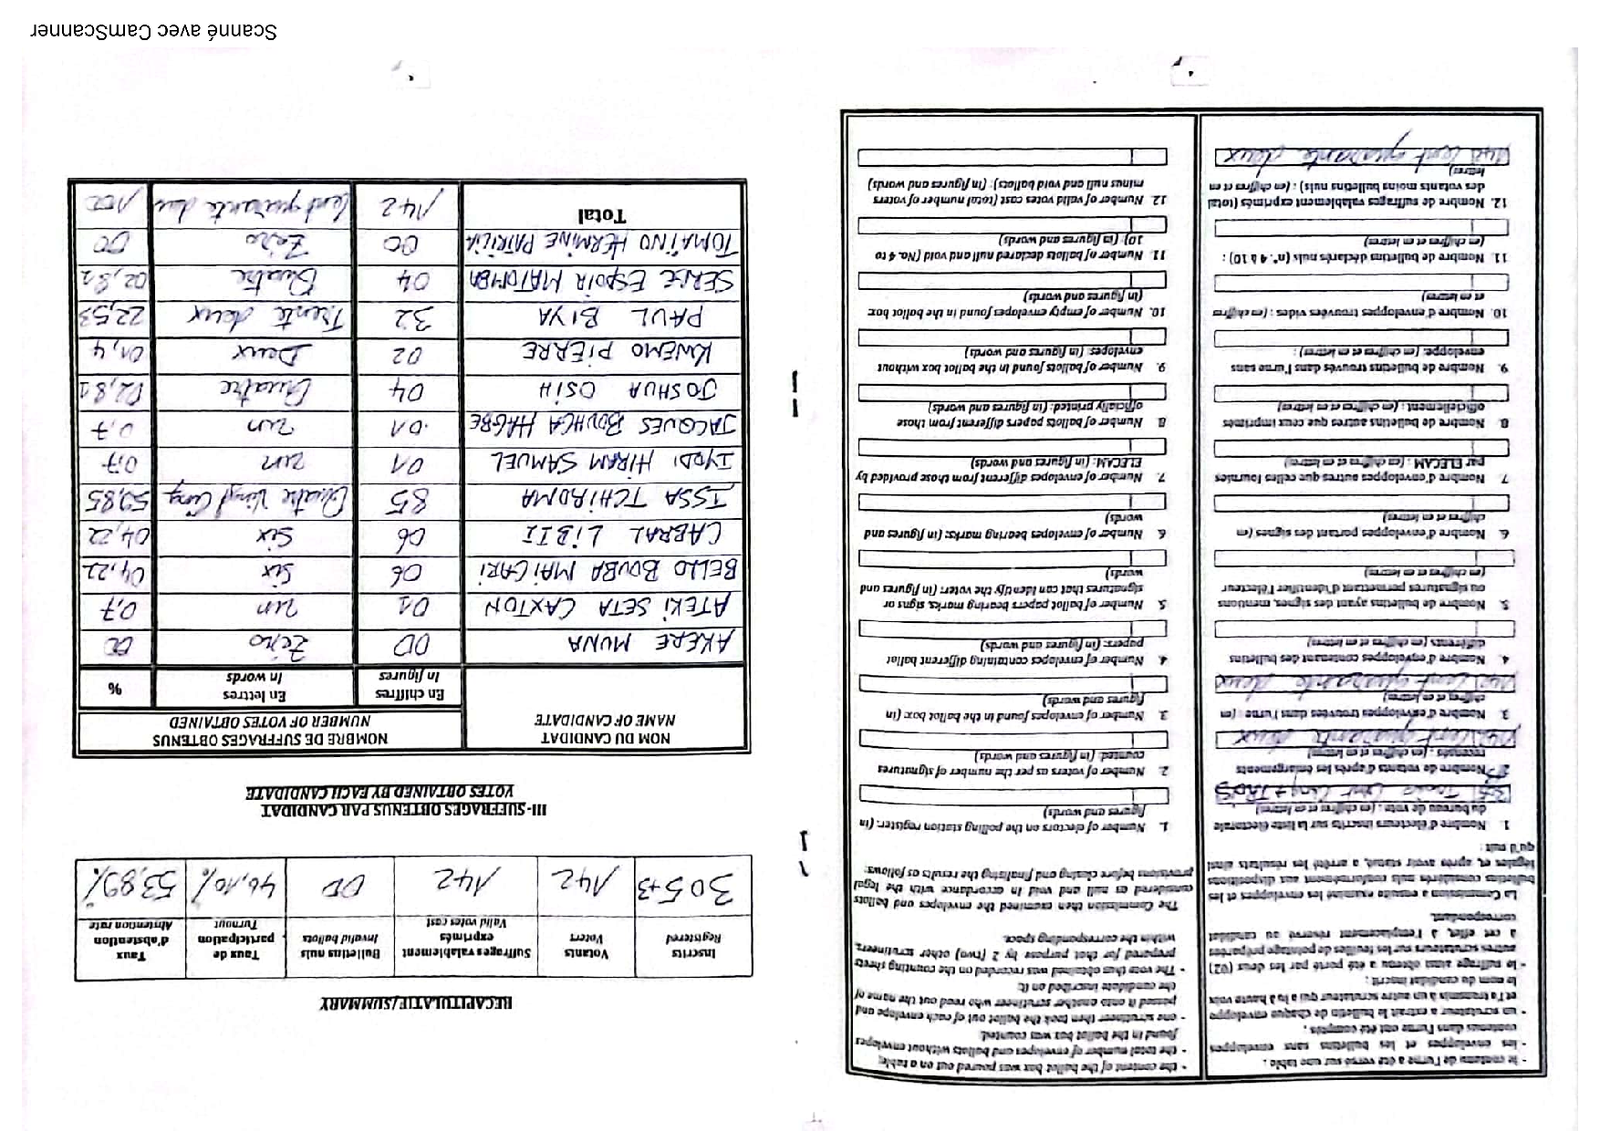 - le contenu de l'urne a été versé sur une table ,
- les enveloppes et les bulletins sans enveloppes
contenus dans l'urne ont été comptés ,
- un scrutateur a extrait le bulletin de chaque enveloppe
et l'a transmis à un autre scrutateur qui a lu à haute voix
le nom du candidat inscrit ;
- le suffrage ainsi obtenu a été porté par les deux (02)
autres scrutateurs sur les feuilles de pointage préparées
à cet effet, à l'emplacement réservé au candidat
correspondant.
La Commission a ensuite examiné les enveloppes et les
bulletins considérés nuls conformément aux dispositions
légales et, après avoir statué, a arrêté les résultats ainsi
qu'il suit :
1. Nombre d'électeurs inscrits sur la liste électorale
du bureau de vote : (en chiffres et en lettres)
Trois Cent Cinq + Trois
2. Nombre de votants d'après les émargements
recensés : (en chiffres et en lettres)
142 Cent quarante deux
3. Nombre d'enveloppes trouvées dans l'urne : (en
chiffres et en lettres)
142 Cent quarante deux
4. Nombre d'enveloppes contenant des bulletins
différents (en chiffres et en lettres)
5. Nombre de bulletins ayant des signes, mentions
ou signatures permettant d'identifier l'électeur
(en chiffres et en lettres)
6. Nombre d'enveloppes portant des signes (en
chiffres et en lettres)
7. Nombre d'enveloppes autres que celles fournies
par ELECAM : (en chiffres et en lettres)
8. Nombre de bulletins autres que ceux imprimés
officiellement : (en chiffres et en lettres)
9. Nombre de bulletins trouvés dans l'urne sans
enveloppe. (en chiffres et en lettres) :
10. Nombre d'enveloppes trouvées vides : (en chiffres
et en lettres)
11. Nombre de bulletins déclarés nuls (n°. 4 à 10) :
(en chiffres et en lettres)
12. Nombre de suffrages valablement exprimés (total
des votants moins bulletins nuls) : (en chiffres et en
lettres)
142 Cent quarante deux
- the content of the ballot box was poured out on a table;
- the total number of envelopes and ballots without envelopes
found in the ballot box was counted;
- one scrutineer then took the ballot out of each envelope and
passed it onto another scrutineer who read out the name of
the candidate inscribed on it;
- The vote thus obtained was recorded on the counting sheets
prepared for that purpose by 2 (two) other scrutineers,
within the corresponding space.
The Commission then examined the envelopes and ballots
considered as null and void in accordance with the legal
provisions before closing and finalizing the results as follows:
1. Number of electors on the polling station register: (in
figures and words)
2. Number of voters as per the number of signatures
counted: (in figures and words)
3. Number of envelopes found in the ballot box: (in
figures and words)
4. Number of envelopes containing different ballot
papers: (in figures and words)
5. Number of ballot papers bearing marks, signs or
signatures that can identify the voter: (in figures and
words)
6. Number of envelopes bearing marks: (in figures and
words)
7. Number of envelopes different from those provided by
ELECAM: (in figures and words)
8. Number of ballots papers different from those
officially printed: (in figures and words)
9. Number of ballots found in the ballot box without
envelopes: (in figures and words)
10. Number of empty envelopes found in the ballot box:
(in figures and words)
11. Number of ballots declared null and void (No. 4 to
10): (in figures and words)
12. Number of valid votes cast (total number of voters
minus null and void ballots): (in figures and words)
RECAPITULATIF/SUMMARY
Inscrits Registered Votants Voters Suffrages valablement exprimés Valid votes cast Bulletins nuls Invalid ballots Taux de participation Turnout Taux d'abstention Abstention rate
305+3 142 142 00 46,10% 53,89%
III-SUFFRAGES OBTENUS PAR CANDIDAT
VOTES OBTAINED BY EACH CANDIDATE
NOM DU CANDIDAT NAME OF CANDIDATE NOMBRE DE SUFFRAGES OBTENUS NUMBER OF VOTES OBTAINED
En chiffres In figures En lettres In words %
AKERE MUNA 00 Zéro 00
ATEKI SETA CAXTON 01 un 0,7
BELLO BOUBA MAIGARI 06 Six 04,22
CABRAL LIBII 06 Six 04,22
ISSA TCHIROMA 85 Quatre Vingt Cinq 59,85
IYODI HIRAM SAMUEL 01 un 0,7
JACQUES BOUHGA HAGBE 01 un 0,7
JOSHUA OSIH 04 Quatre 02,81
KWEMO PIERRE 02 Deux 01,4
PAUL BIYA 32 Trente deux 22,53
SERGE ESPOIR MATOMBA 04 Quatre 02,81
TOMAÏNO HERMINE PATRICIA 00 Zéro 00
Total 142 Cent quarante deux 100
Scanné avec CamScanner